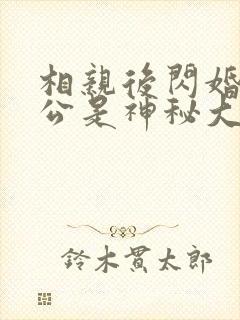 相親後閃婚
公是神秘大
鈴木貫太郎